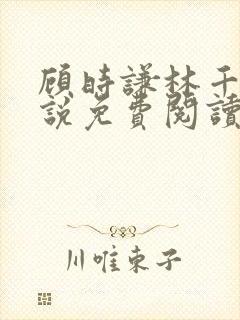 顾時謙林千
說免費閱讀
川唯東子